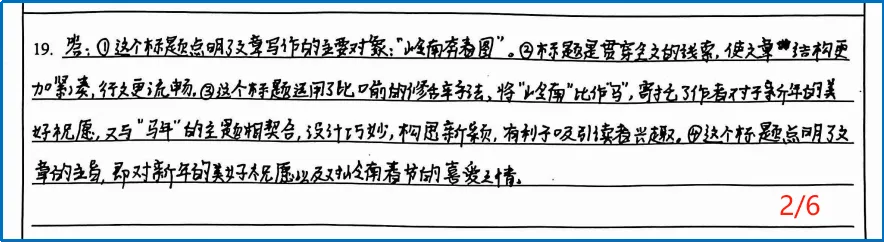 19. 答：①这个标题点明了文章写作的主要对象："岭南奔春图"。②标题是贯穿全文的线索，使文章结构更
加紧凑，行文更流畅。③这个标题运用了比喻的修辞手法，将"岭南"比作"马"，寄托了作者对于新年的美
好祝愿，又与"马年"的主题相契合，设计巧妙，构思新颖，有利于吸引读者兴趣。④这个标题点明了文
章的主旨，即对新年的美好祝愿以及对岭南春节的喜爱之情。
2/6